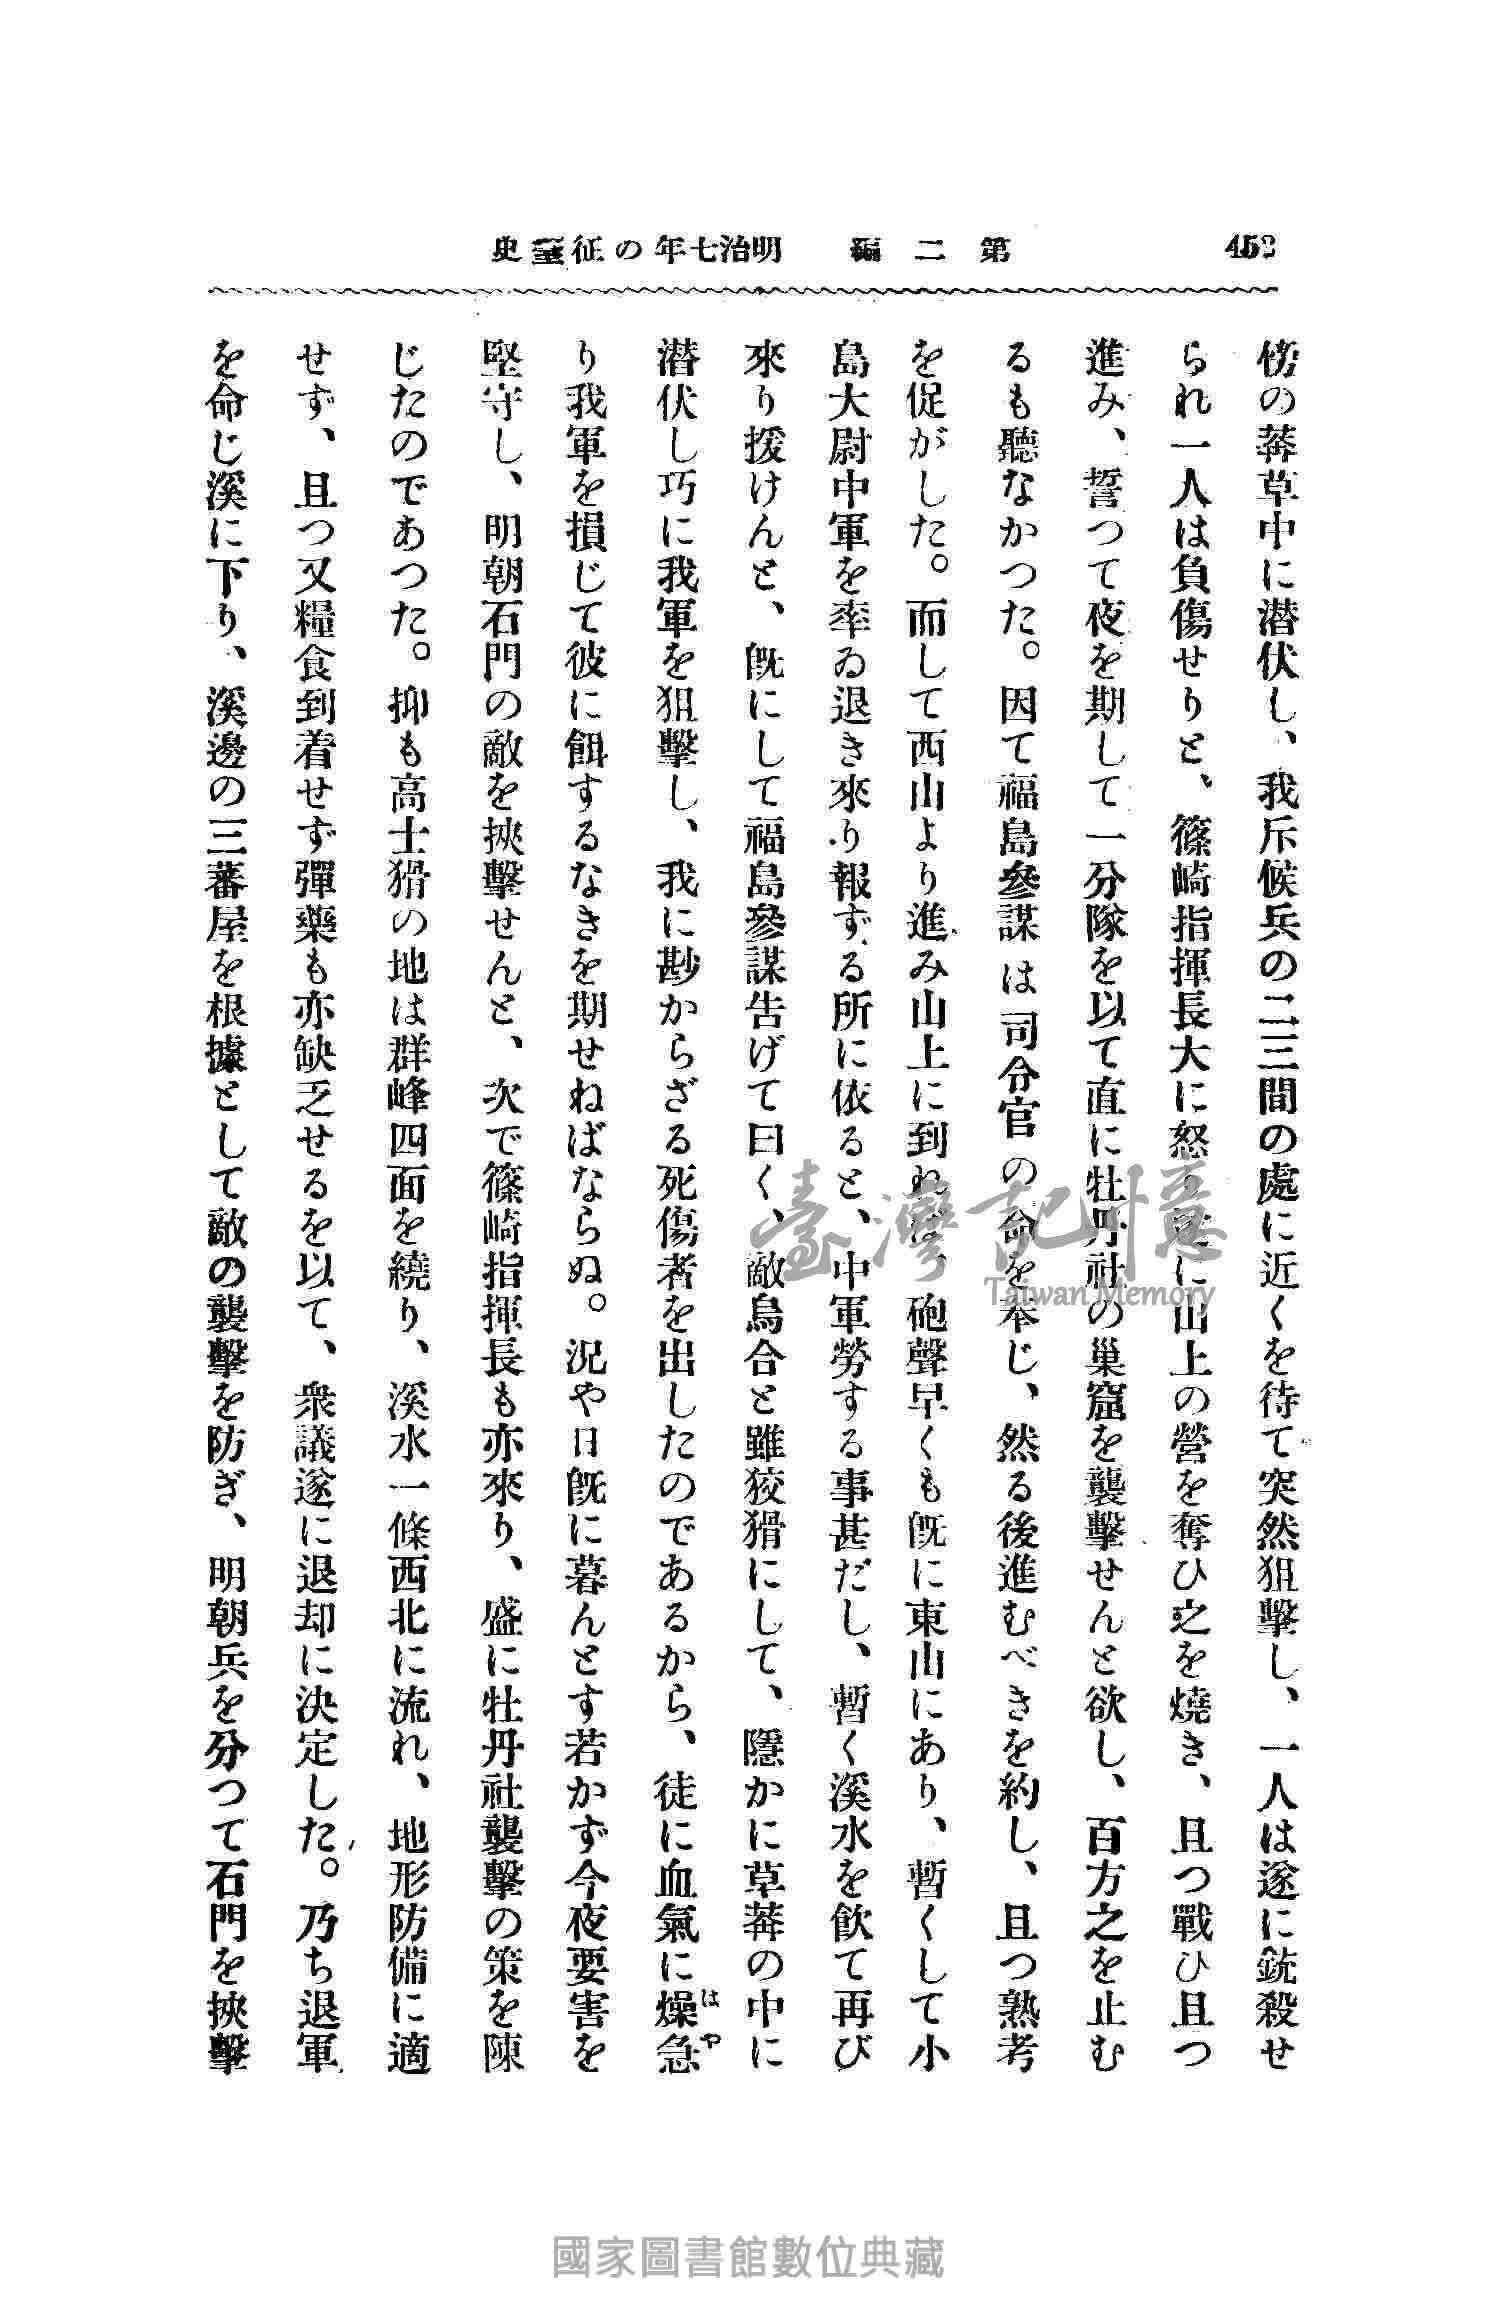 第二編 明治七年の征臺史
傍の莾草中に潜伏し、我斥候兵の二三間の處に近くを待て突然狙擊し、一人は遂に銃殺せ
られ一人は負傷せりと、篠崎指揮長大に怒り遂に山上の營を奪ひ之を燒き、且つ戰ひ且つ
進み、誓つて夜を期して一分隊を以て直に牡丹社の巢窟を襲擊せんと欲し、百方之を止む
るも聽なかつた。因て福島參謀は司令官の命を奉じ、然る後進むべきを約し、且つ熟考
を促がした。而して西山より進み山上に到れば、砲聲早くも既に東山にあり、暫くして小
島大尉中軍を率ゐ退き來り報ずる所に依ると、中軍勞する事甚だし、暫く溪水を飮て再び
來り援けんと、既にして福島參謀告げて曰く、敵烏合と雖狡猾にして、隱かに草莾の中に
潜伏し巧に我軍を狙擊し、我に尠からざる死傷者を出したのであるから、徒に血氣に燥急
はや
り我軍を損じて彼に餌するなきを期せねばならぬ。況や日既に暮んとす若かず今夜要害を
堅守し、明朝石門の敵を挾擊せんと、次で篠崎指揮長も亦來り、盛に牡丹社襲擊の策を陳
じたのであつた。抑も高士猾の地は群峰四面を繞り、溪水一條西北に流れ、地形防備に適
せず、且つ又糧食到着せず彈藥も亦缺乏せるを以て、衆議遂に退却に決定した。乃ち退軍
を命じ溪に下り、溪邊の三蕃屋を根據として敵の襲擊を防ぎ、明朝兵を分つて石門を挾擊
臺灣記憶
Taiwan Memory
國家圖書館數位典藏